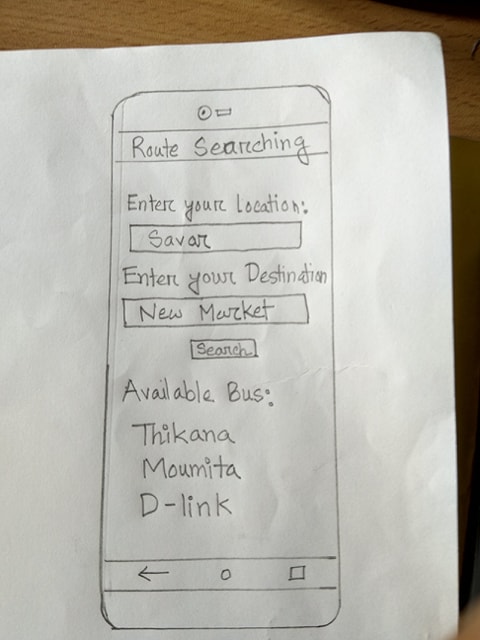 Route Searching
Enter your Location:
Savar
Enter your Destination
New Market
Search
Available Bus:
Thikana
Moumita
D-link